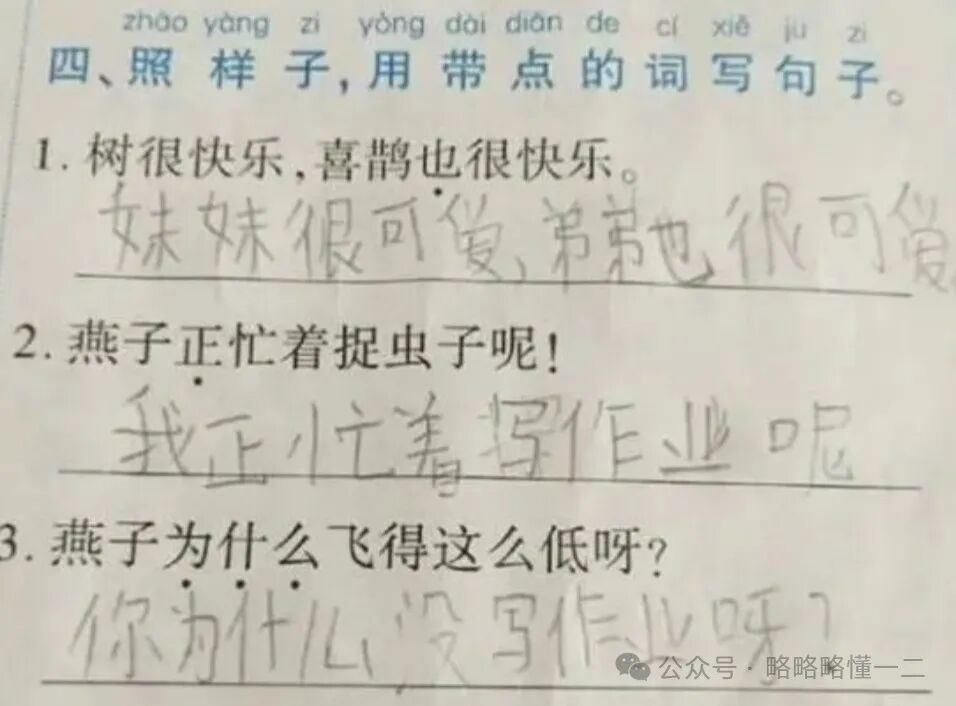 zhào yàng zi yòng dài diǎn de cí xiě jù zi
四、照样子,用带点的词写句子。
1. 树很快乐,喜鹊也很快乐。
妹妹很可爱,弟弟也很可爱。
2. 燕子正忙着捉虫子呢!
我正忙着写作业呢
3. 燕子为什么飞得这么低呀?
你为什么没写作业呀?
公众号·略略略懂一二